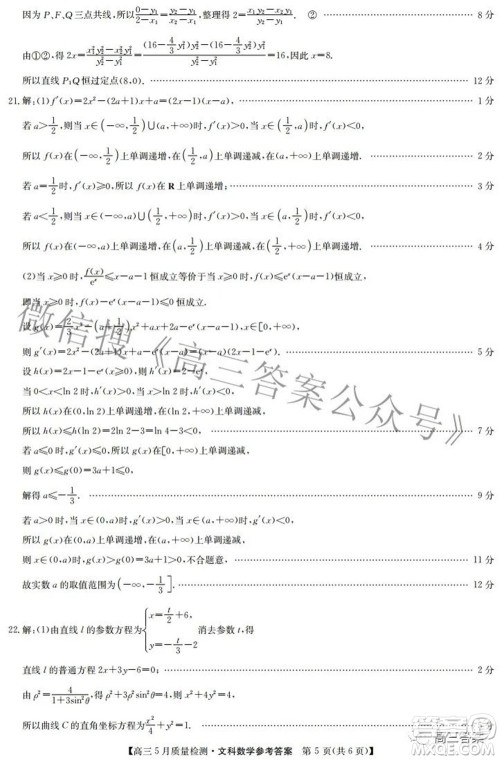 因为 P、F、Q 三点共线,所以 (0-y₁)/(2-x₁)=(y₂-y₁)/(x₂-x₁),整理得 2=(x₁y₂-x₂y₁)/(y₂-y₁). ② 8 分
由①②,得 2x=(x₁²y₂²-x₂²y₁²)/(y₂²-y₁²)=((16-4/3y₁²)y₂²-(16-4/3y₂²)y₁²)/(y₂²-y₁²)=16,因此 x=8.
所以直线 P₁Q 恒过定点(8,0). 12 分
21.解:(1)f′(x)=2x²-(2a+1)x+a=(2x-1)(x-a), 1 分
若 a>1/2,则当 x∈(-∞,1/2)∪(a,+∞)时,f′(x)>0,当 x∈(1/2,a)时,f′(x)<0,
所以 f(x)在(-∞,1/2)上单调递增,在(1/2,a)上单调递减,在(a,+∞)上单调递增. 2 分
若 a=1/2时,f′(x)≥0,所以 f(x)在 R 上单调递增; 3 分
若 a<1/2,则当 x∈(-∞,a)∪(1/2,+∞)时,f′(x)>0,当 x∈(a,1/2)时,f′(x)<0,
所以 f(x)在(-∞,a)上单调递增,在(a,1/2)上单调递减,在(1/2,+∞)上单调递增. 4 分
(2)当 x≥0 时,f(x)/eˣ≤x-a-1 恒成立等价于当 x≥0 时,f(x)≤eˣ(x-a-1)恒成立,
即当 x≥0 时,f(x)-eˣ(x-a-1)≤0 恒成立.
设 g(x)=2/3x³-(2a+1)/2x²+ax+2a-eˣ(x-a-1),x∈[0,+∞),
则 g′(x)=2x²-(2a+1)x+a-eˣ(x-a)=(x-a)(2x-1-eˣ). 5 分
设 h(x)=2x-1-eˣ,则 h′(x)=2-eˣ.
当 0<x<ln 2时,h′(x)>0,当 x>ln 2时,h′(x)<0,
所以 h(x)在(0,ln 2)上单调递增,在(ln 2,+∞)上单调递减,
所以 h(x)≤h(ln 2)=2ln 2-3=ln 4-3<0, 7 分
若 a≤0 时,g′(x)≤0,所以 g(x)在[0,+∞)上单调递减,
则 g(x)≤g(0)=3a+1≤0,
解得 a≤-1/3. 9 分
若 a>0 时,当 x∈(0,a)时,g′(x)>0,当 x∈(a,+∞)时,g′(x)<0,
所以 g(x)在(0,a)上单调递增,在(a,+∞)上单调递减,
则 x∈(0,a)时,g(x)>g(0)=3a+1>0,不合题意, 11 分
故实数 a 的取值范围为(-∞,-1/3]. 12 分
22.解:(1)由直线 l 的参数方程为{x=t/2+6, y=-t/3-2 消去参数 t,得
直线 l 的普通方程 2x+3y-6=0; 2 分
由 ρ²=4/(1+3sin²θ),得 ρ²+3ρ²sin²θ=4,则 x²+4y²=4,
所以曲线 C 的直角坐标方程为 x²/4+y²=1.
【高三 5 月质量检测·文科数学参考答案 第 5 页(共 6 页)】
微信搜《高三答案公众号》
高三答案